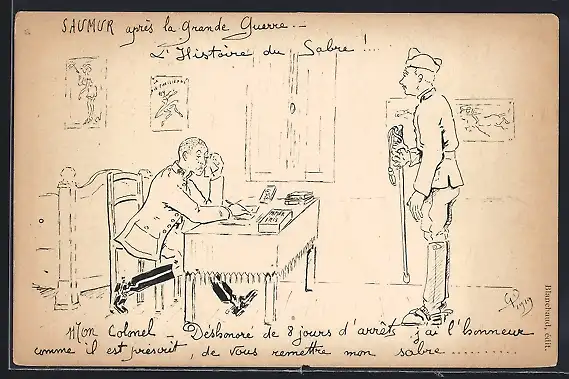 SAUMUR après la Grande Guerre.-
L'Histoire du Sabre !...
LA
PARISIENNE
PAPIER
1919
Mon Colonel - Deshonoré de 8 jours d'arrêts j'ai l'honneur
comme il est prescrit, de vous remettre mon sabre..........
Blanchaud, édit.